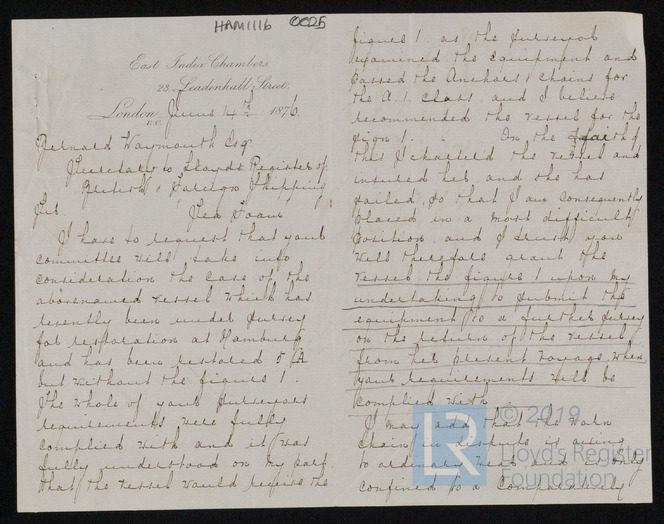 HAM1116 0025
East India Chambers
23, Leadenhall Street,
London, June 14th 1876.
E.C.
Bernard Waymouth Esq
Secretary to Lloyds Register of
British & Foreign Shipping
Sir
I have to request that your
committee will take into
consideration the case of the
abovenamed vessel which has
recently been under survey
for restoration at Hamburg
and has been restored 5 A
but without the figure 1.
The whole of your Surveyors
requirements were fully
complied with and it was
fully understood on my part
that the vessel would receive the
figure 1 as the Surveyor
examined the equipment and
passed the Anchors & chains for
the A.1. class and I believe
recommended the vessel for the
figure 1. On the faith of
this I chartered the vessel and
insured her and she has
sailed, so that I am consequently
placed in a most difficult
position and I trust you
will therefore grant the
vessel the figure 1 upon my
undertaking to submit the
equipment to a further survey
on the return of the vessel
from her present voyage when
your requirements will be
complied with
I may add that the worn
chain in dispute is owing
to ordinary wear and is only
confined to a comparatively
© 2019
LR
Lloyd's Register
Foundation